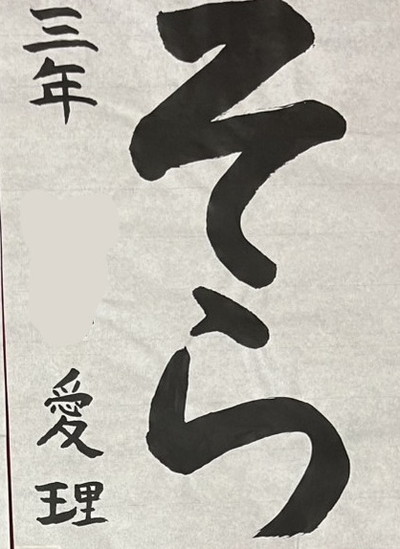 そら
三年
愛理